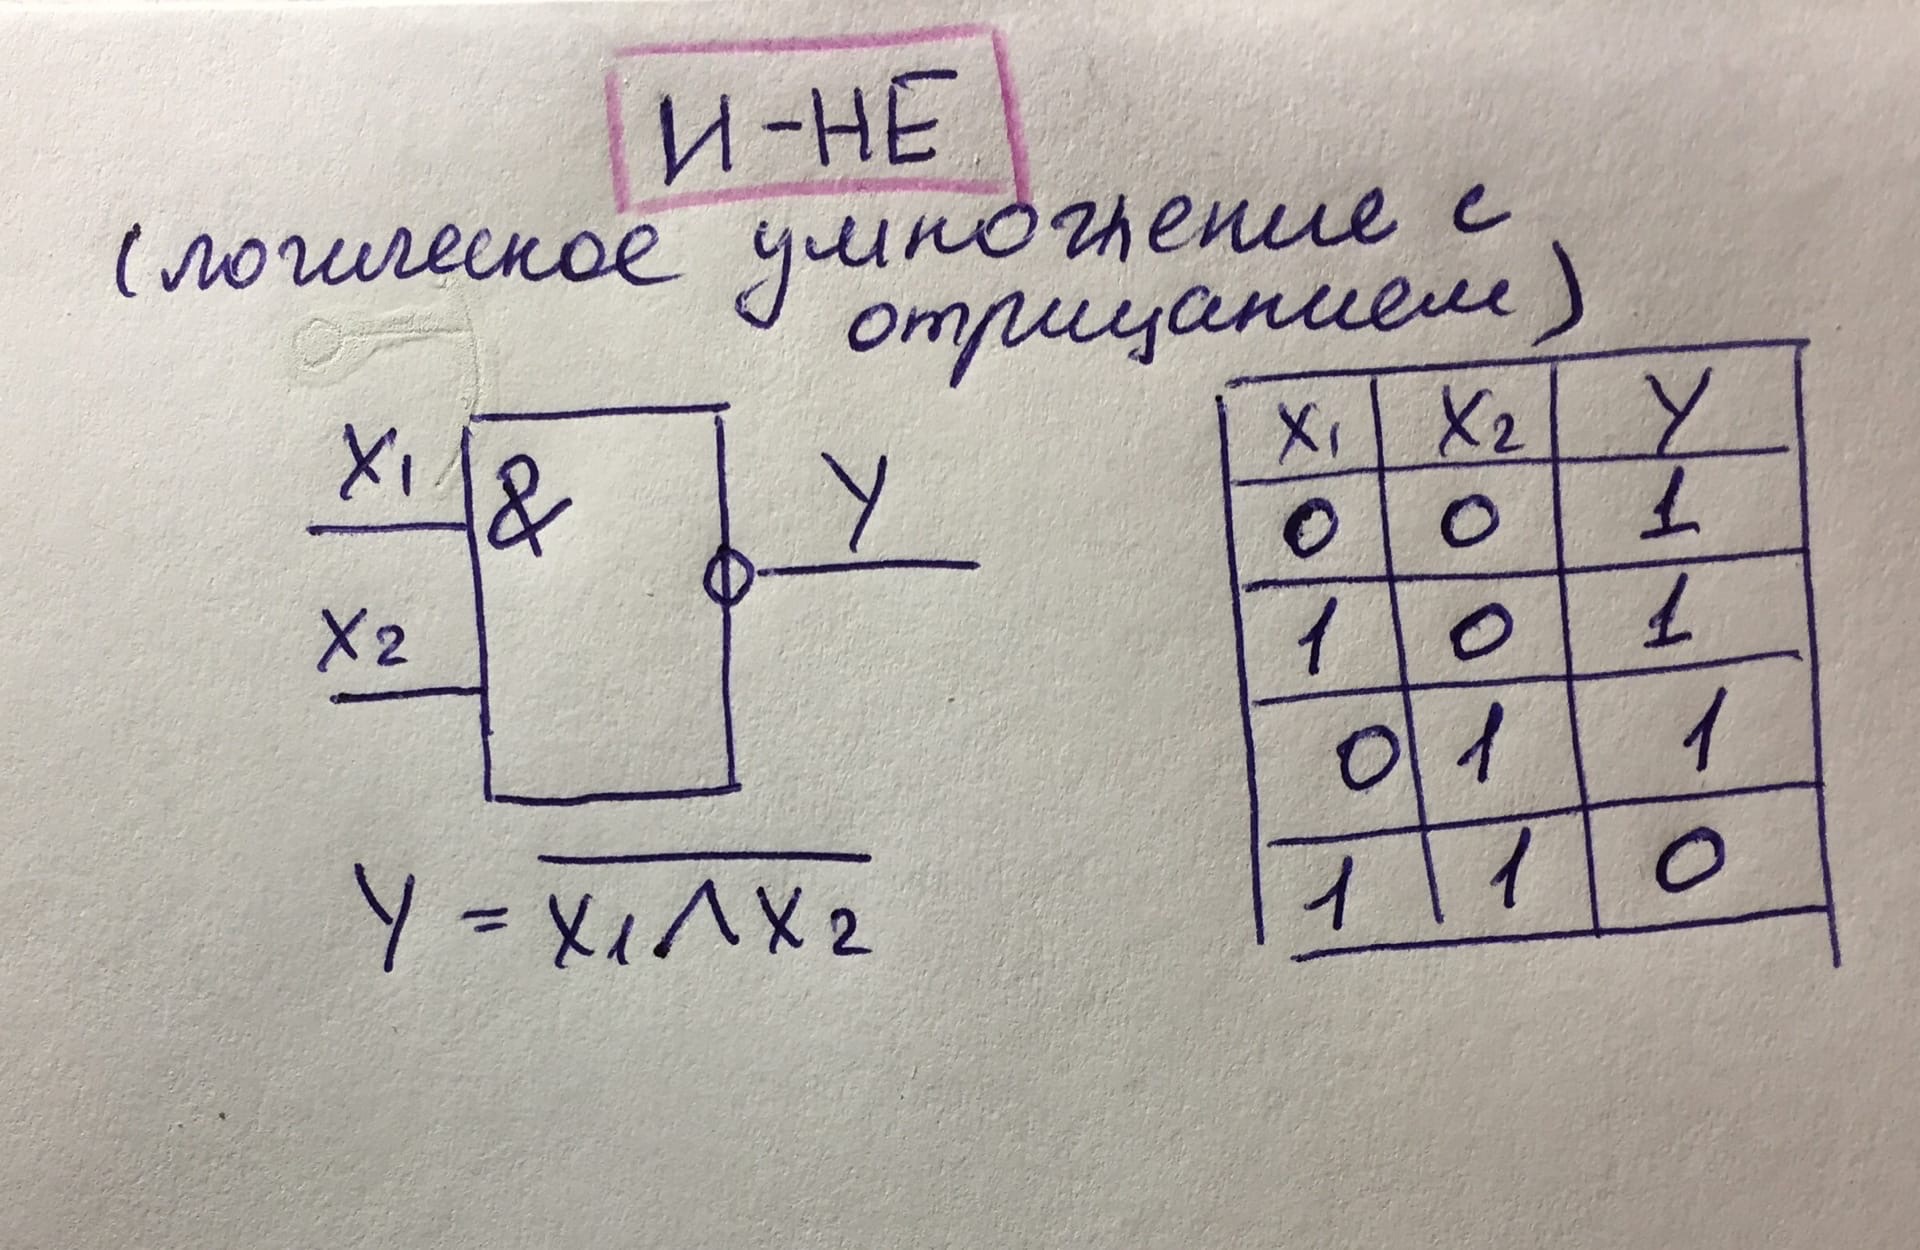 И-НЕ
(логическое умножение с
отрицанием)
X1
&
Y
X2
Y = \overline{X1 ∧ X2}
X1 X2 Y
0 0 1
1 0 1
0 1 1
1 1 0